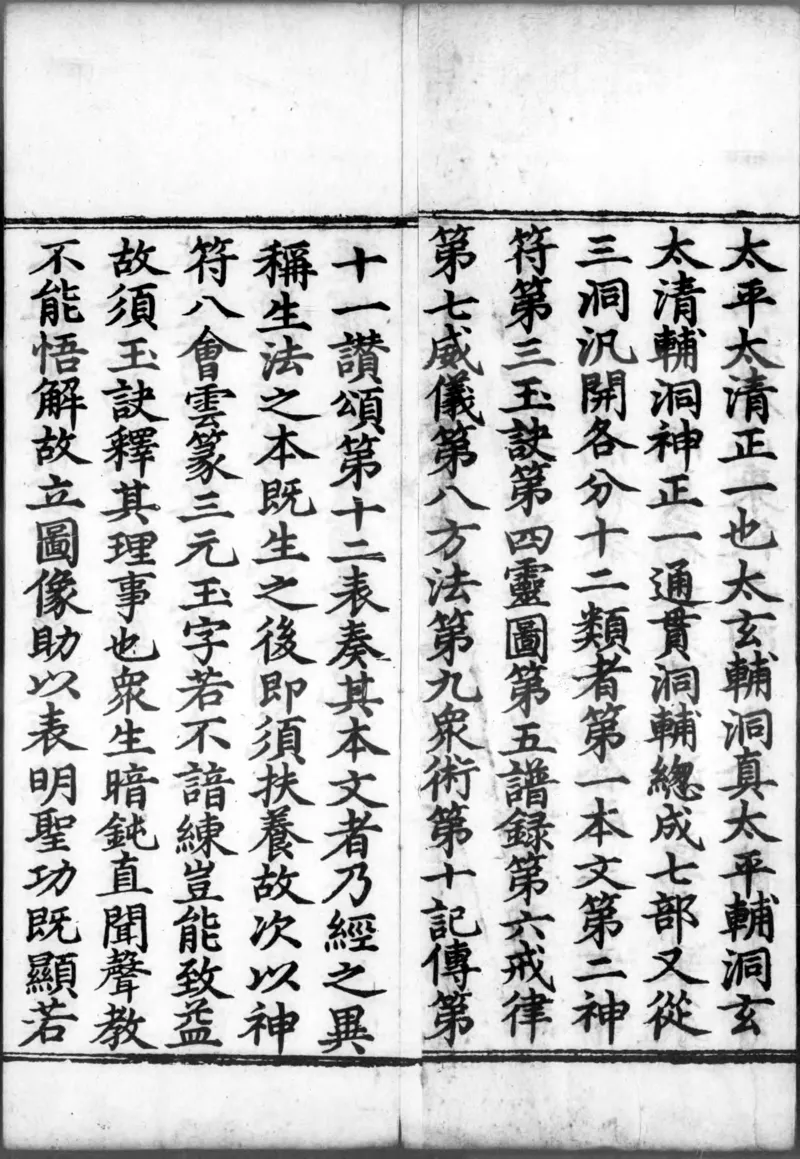 太平太清正一也太玄輔洞真太平輔洞玄
太清輔洞神正一通貫洞輔總成七部又從
三洞汎開各分十二類者第一本文第二神
符第三玉訣第四靈圖第五譜録第六戒律
第七威儀第八方法第九衆術第十記傳第
十一讃頌第十二表奏其本文者乃經之異
稱生法之本既生之後即須扶養故次以神
符八會雲篆三元玉字若不諳練豈能致益
故須玉訣釋其理事也衆生暗鈍直聞聲教
不能悟解故立圖像助以表明聖功既顯若